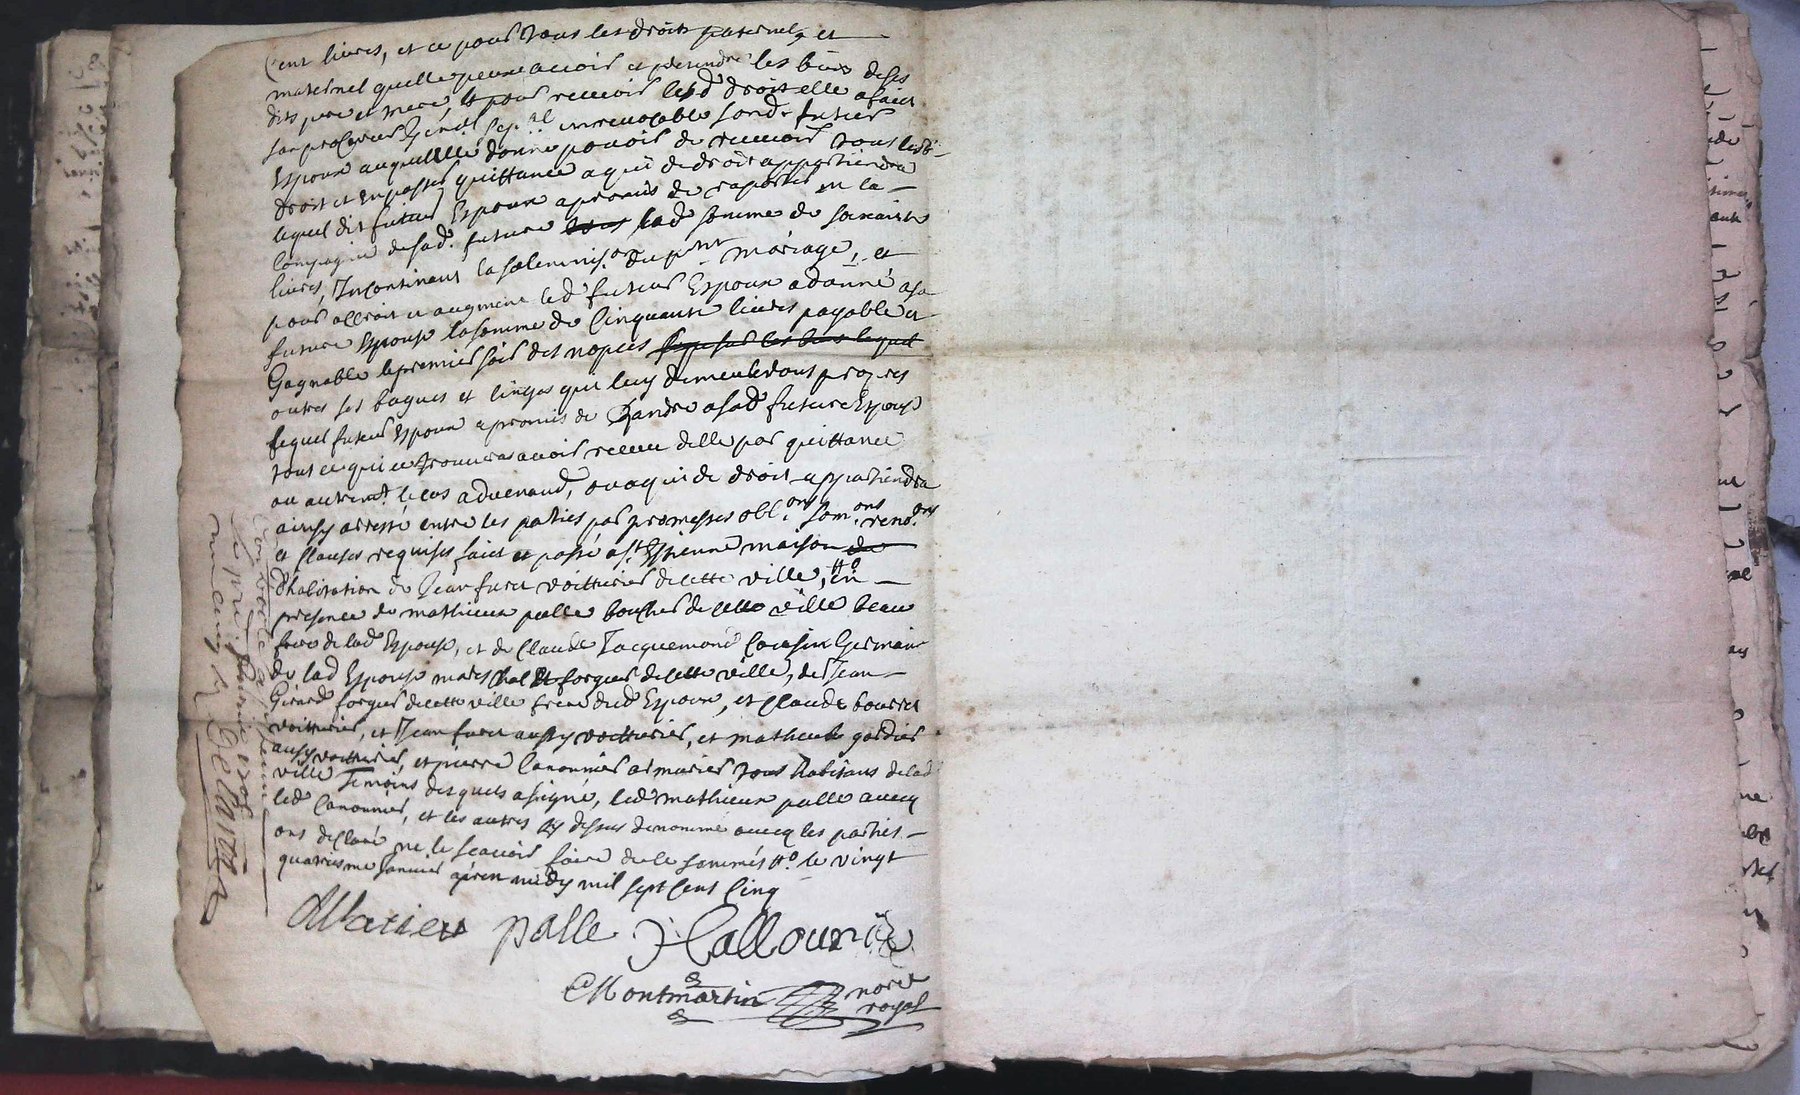 Cent livres, et ce pour tous les droits paternelz et
maternel quelle peut avoir et pretendre les biens de ses
dits pere et mere, et pour recevoir lesd droit elle a faict
son procureur g'nal irrevocable sond. futur
Espoux auquel elle donne pouvoir de recevoir tous lesd
droit et en passer quittance a qui de droit appartiendra
lequel dit futur Espoux a promis de raporter en la
Compagnie de sad. future lad somme de soixante
livres, Incontinant la solemnis.on du p.nt mariage, et
pour augment led futur Espoux a donné a sa
future Espouse la somme de Cinquante livres payable et
Gagnable le premier soir des nopces
outre ses bagues et linges qui luy demeureront propres
lequel futur Espoux a promis de Randre a sad future Espouse
tout ce qui ce trouvera avoir receu delle par quittance
ou autrem.t le cas advenand, ou a qui de droit appartiendra
ainsy arresté entre les parties par promesses obl.ons som.ons renon.ons
et clauses requises faict et passé a S.t Estienne maison de
d'habitation de Jean furet voitturier de cette ville, en
presence de mathieux palle boucher de cette ville beau
frere de lad Espouse, et de Claude Jacquemond Cousin Germain
de lad Espouse mareschal et forgeur de cette ville, de Jean
Girard forgeur de cette ville frere dud Espoux, et Claude bourret
voitturier, et Jean furet aussy voitturier, et mathieu gordier
aussy voitturier, et pierre Canonnier armurier tous habitans de lad
ville Temoins desquels a signé, led mathieux palle avecq
led Canonnier, et les autres cy dessus denommé avecq les parties
ont declaré ne le scavoir faire de ce sommés le vingt
quatriesme Janvier apres midy mil sept Cent Cinq
Matieu palle
Montmartin no.re
royal
Delaroa